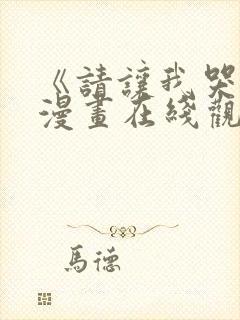 《請讓我哭
漫畫在綫觀
馬德